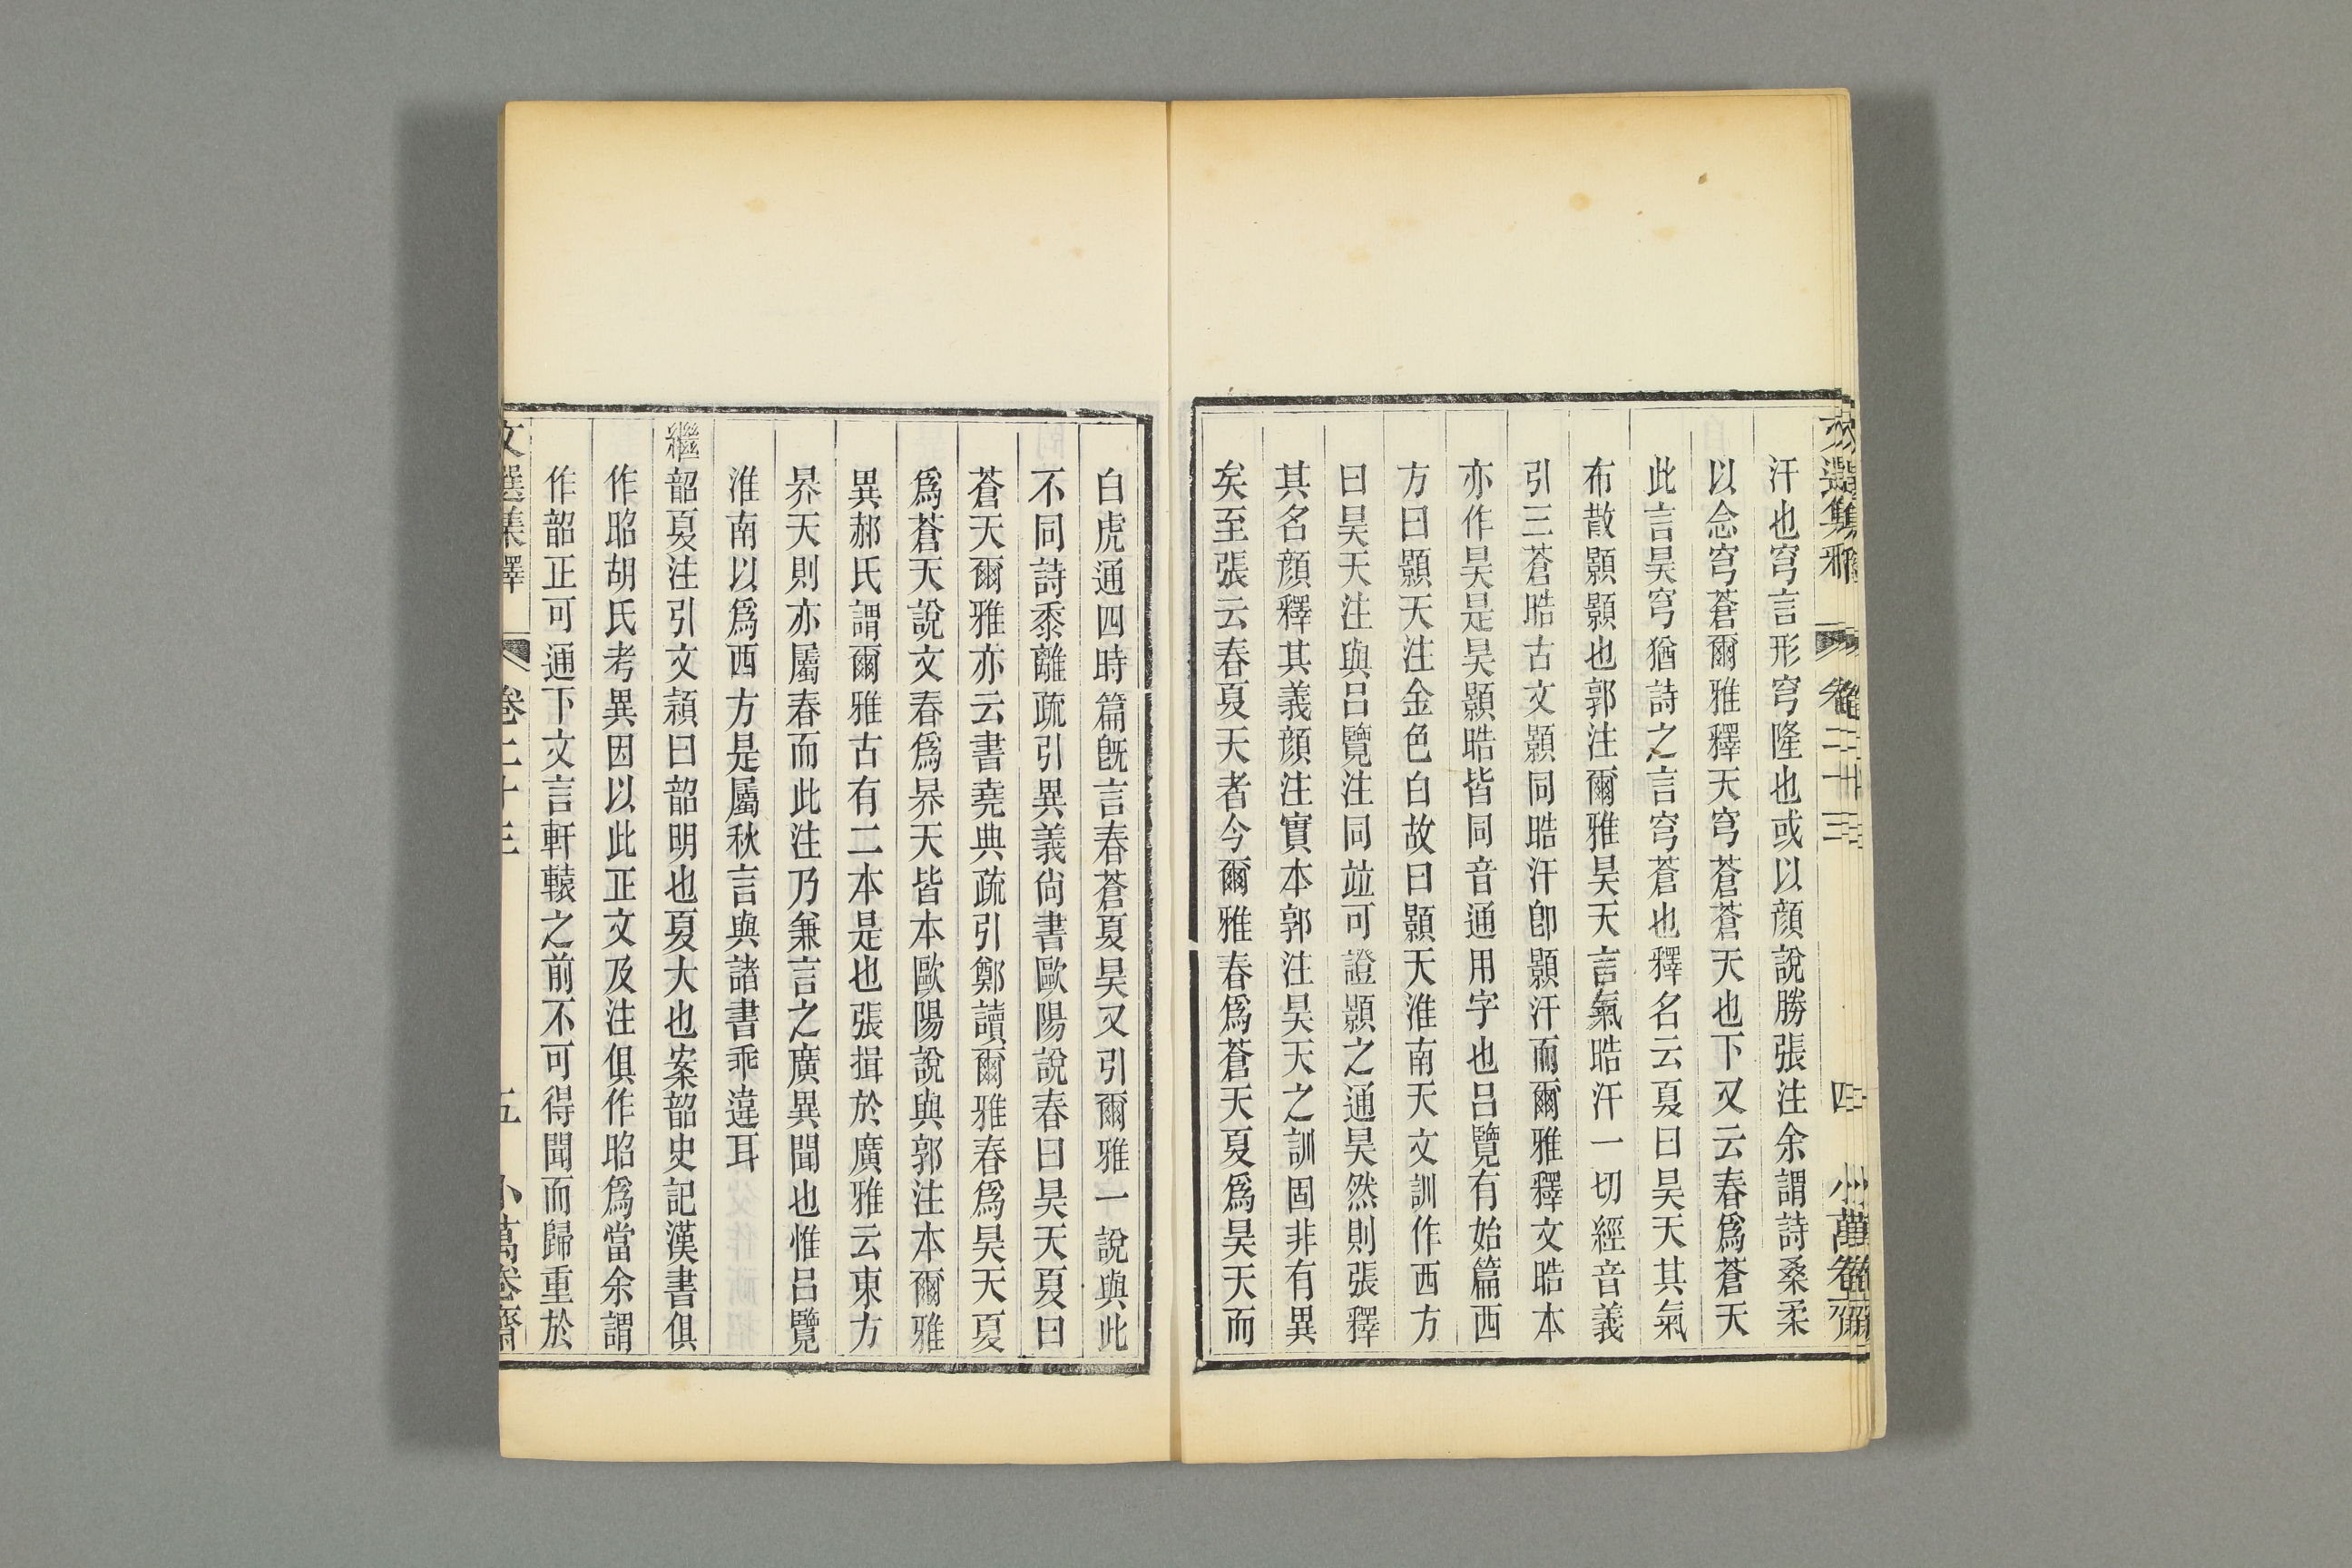 汗也穹言形穹隆也或以顔說勝張注余謂詩桑柔
以念穹蒼爾雅釋天穹蒼蒼天也下又云春爲蒼天
此言昊穹猶詩之言穹蒼也釋名云夏曰昊天其氣
布散顥顥也郭注爾雅昊天言氣晧汗一切經音義
引三蒼晧古文顥同晧汗卽顥汗而爾雅釋文晧本
亦作昊是昊顥晧皆同音通用字也呂覽有始篇西
方曰顥天注金色白故曰顥天淮南天文訓作西方
曰昊天注與呂覽注同竝可證顥之通昊然則張釋
其名顔釋其義顔注實本郭注昊天之訓固非有異
矣至張云春夏天者今爾雅春爲蒼天夏爲昊天而
白虎通四時篇旣言春蒼夏昊又引爾雅一說與此
不同詩黍離疏引異義尙書歐陽說春曰昊天夏曰
蒼天爾雅亦云書堯典疏引鄭讀爾雅春爲昊天夏
爲蒼天說文春爲昦天皆本歐陽說與郭注本爾雅
異郝氏謂爾雅古有二本是也張揖於廣雅云東方
昦天則亦屬春而此注乃兼言之廣異聞也惟呂覽
淮南以爲西方是屬秋言與諸書乖違耳
繼韶夏注引文頴曰韶明也夏大也案韶史記漢書俱
作昭胡氏考異因以此正文及注俱作昭爲當余謂
作韶正可通下文言軒轅之前不可得聞而歸重於
文選集釋 卷二十三 五 小萬卷齋